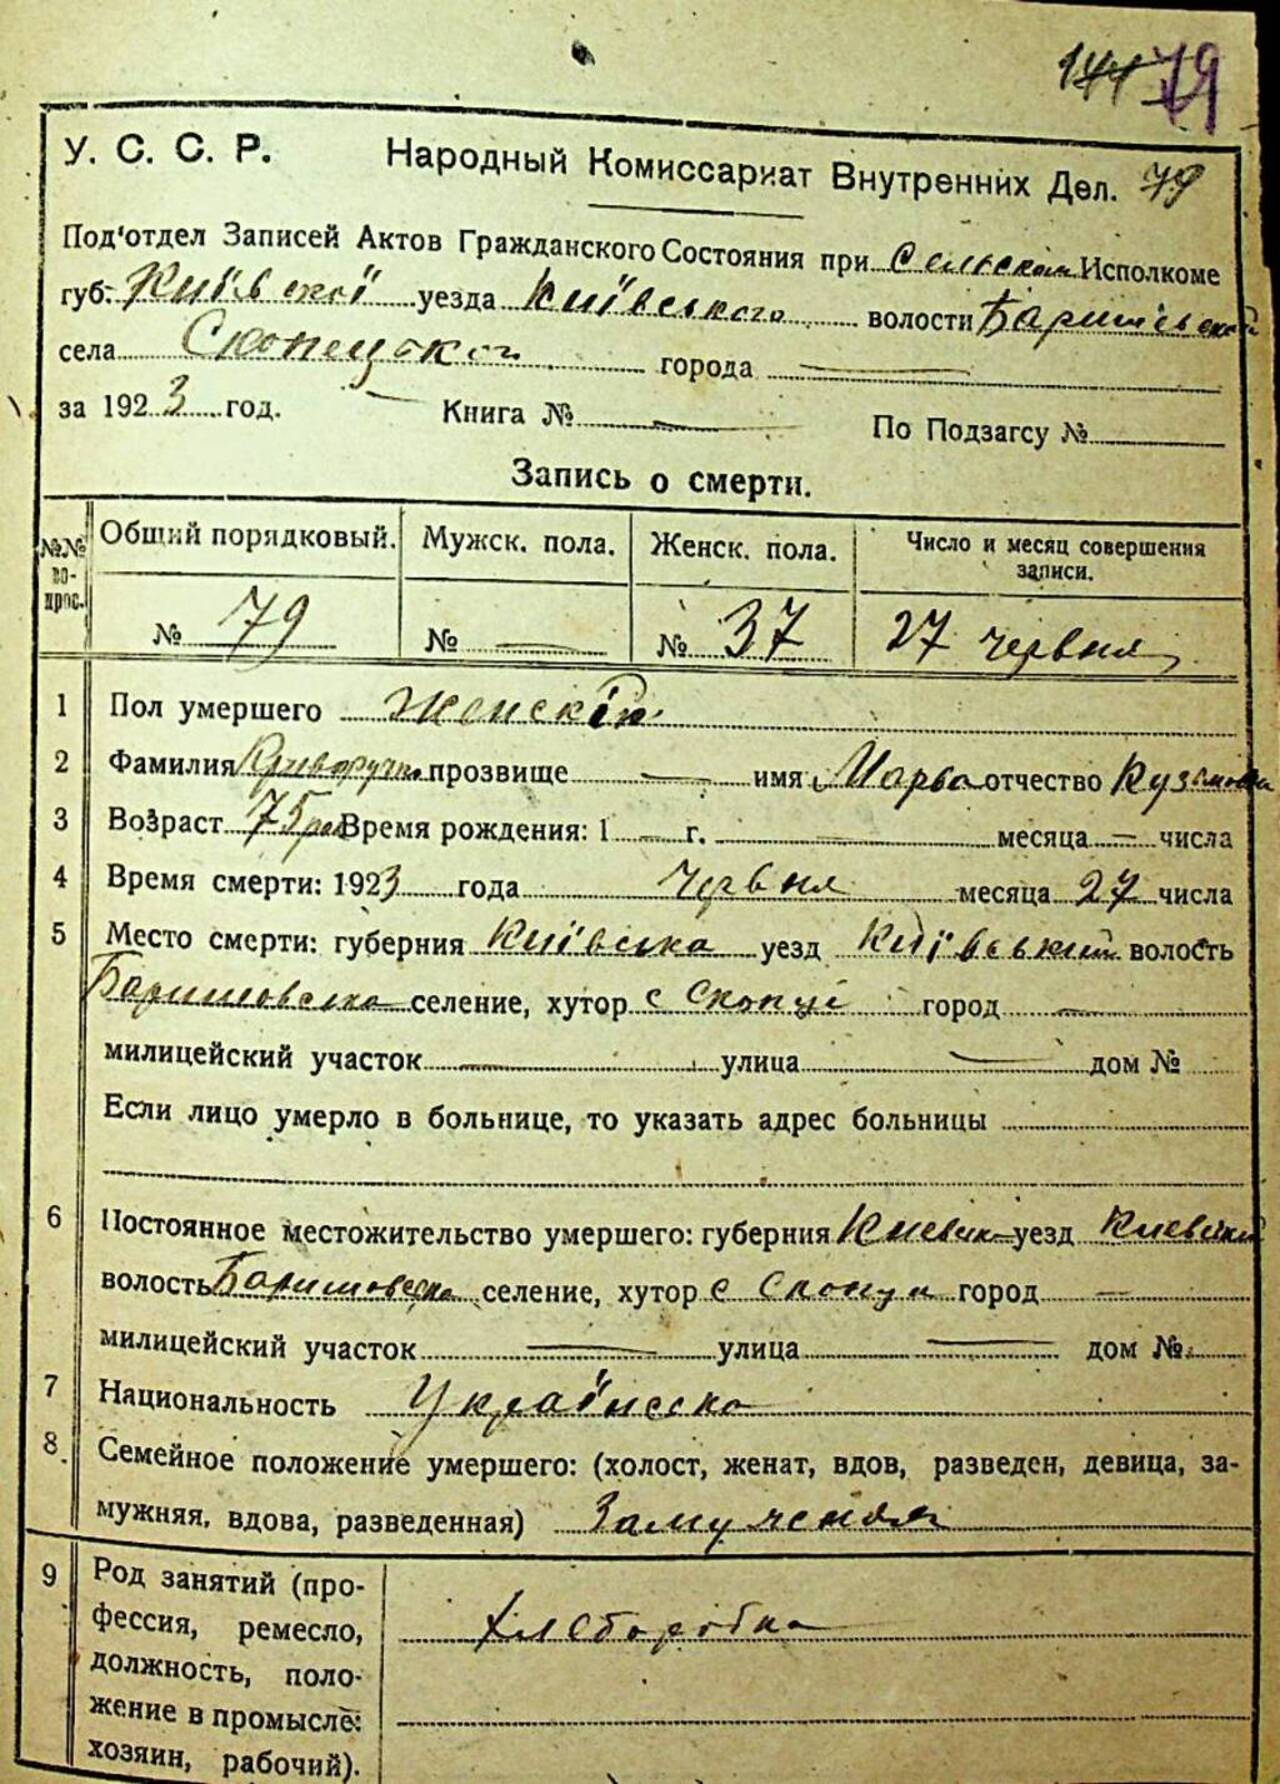 144 79
У. С. С. Р. Народный Комиссариат Внутренних Дел. 79
Под'отдел Записей Актов Гражданского Состояния при Сельском Исполкоме
губ. Київскої уезда Київського волости Баришевской
села Скопецкого города —
за 1923 год. Книга № — По Подзагсу №
Запись о смерти.
№№ во-прос. Общий порядковый. Мужск. пола. Женск. пола. Число и месяц совершения записи.
№ 79 № — № 37 27 червня
1 Пол умершего Женскій
2 Фамилия Криворучко прозвище — имя Марва отчество Кузьмовна
3 Возраст 75 рок Время рождения: 1 — г. — месяца — числа
4 Время смерти: 1923 года червня месяца 27 числа
5 Место смерти: губерния Київська уезд Київський волость
Баришовска селение, хутор с Скопці город —
милицейский участок — улица — дом №
Если лицо умерло в больнице, то указать адрес больницы
6 Постоянное местожительство умершего: губерния Киевск уезд Киевский
волость Баришовска селение, хутор с Скопци город —
милицейский участок — улица — дом №
7 Национальность Українска
8. Семейное положение умершего: (холост, женат, вдов, разведен, девица, за-
мужняя, вдова, разведенная) Замужняя
9 Род занятий (про-
фессия, ремесло, хлеборобка
должность, поло-
жение в промысле:
хозяин, рабочий).